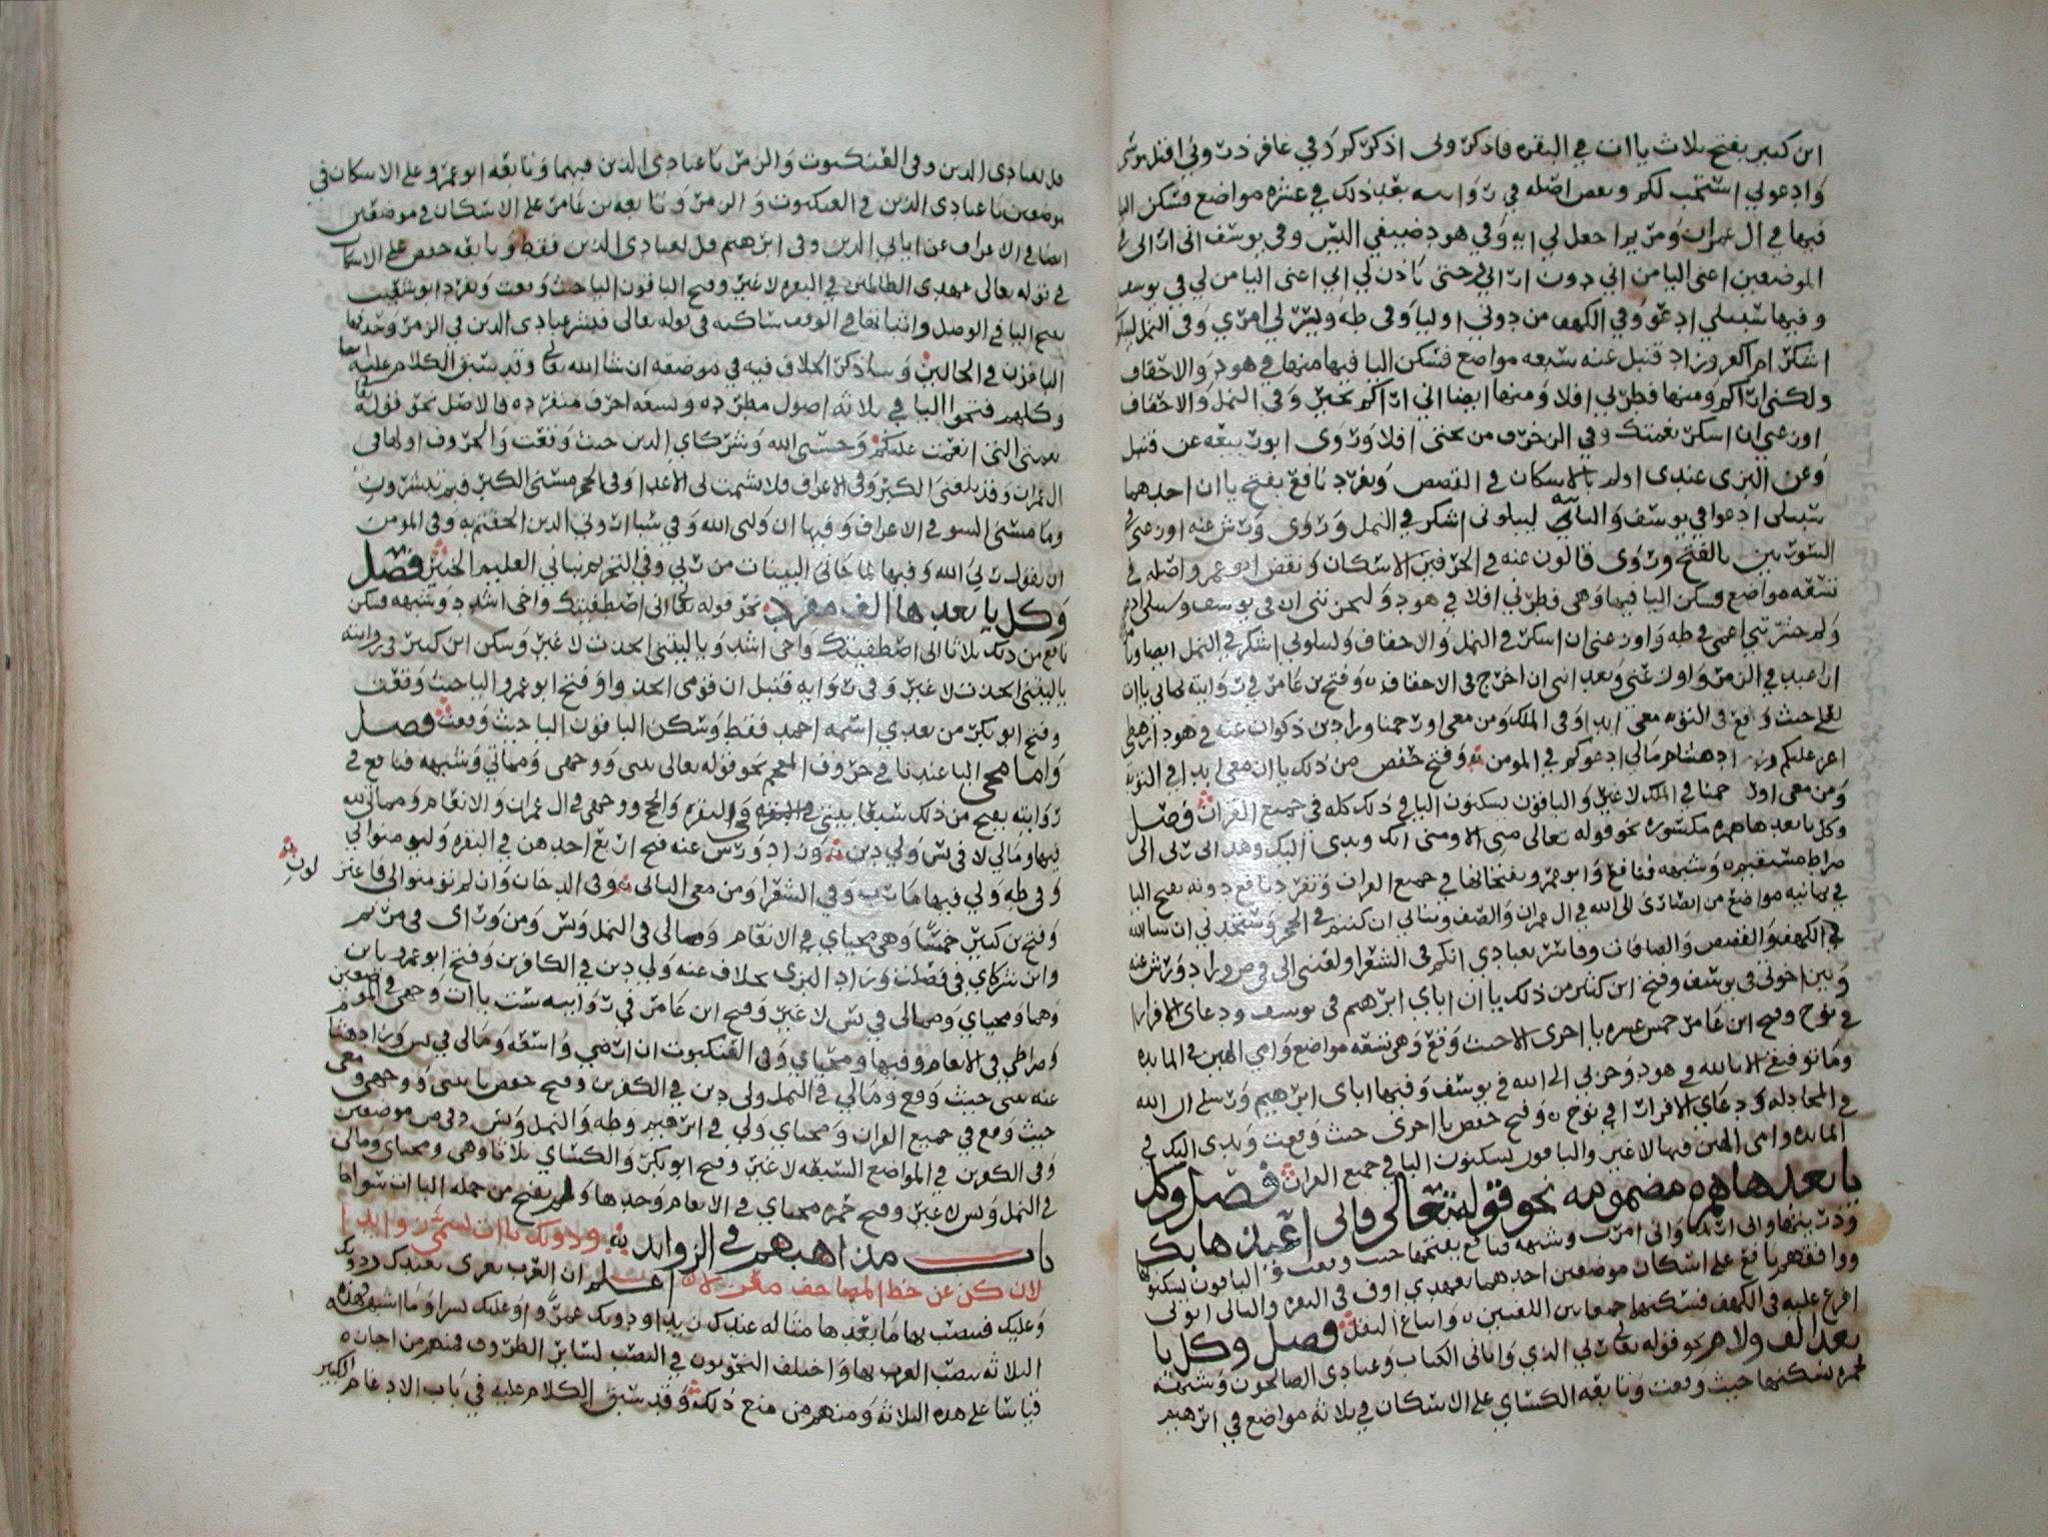 ابن كثير بفتح ثلاث ياات في البقره فاذكروني اذكركم وفي غافر ذروني اقتل موسى
وادعوني استجب لكم ونقض اصله في روايتيه بعد ذلك في عشره مواضع فسكن اليا
فيها في ال عمران ومريم اجعل لي ايه وفي هود ضيفي اليس وفي يوسف اني اراني في
الموضعين اعني اليا من اني دون اراني حتى ياذن لي ابي اعني اليا من لي في يوسف
وفيها سبيلي ادعو وفي الكهف من دوني اوليا وفي طه ويسر لي امري وفي النمل ليبلوني
ااشكر ام اكفر وزاد قنبل عنه سبعه مواضع فسكن اليا فيها منها في هود والاحقاف
ولكني اراكم ومنها فطرني افلا ومنها ايضا اني اراكم بخير وفي النمل والاحقاف
اوزعني ان اشكر نعمتك وفي الزخرف من تحتي افلا وروى ابو ربيعه عن قنبل
وعن البزي عندي اولم بالاسكان في القصص وتفرد نافع بفتح ياان احدهما
سبيلي ادعوا في يوسف والثانيه ليبلوني ااشكر في النمل وروى ورش عنه اوزعني في
السورتين بالفتح وروى قالون عنه في الحرفين الاسكان ونقض ابو عمرو اصله في
تسعه مواضع وسكن اليا فيها وهي فطرني افلا في هود وليحزنني ان في يوسف وسبيلي ادعو
ولم حشرتني اعمى في طه واوزعني ان اشكر في النمل والاحقاف وليبلوني ااشكر في النمل ايضا
ان اعبد في الزمر واوزعني وتعدانني ان اخرج في الاحقاف وفتح بن عامر في روايته ثماني ياات
لعلي حيث وقع وفي التوبه معي ابدا وفي الملك ومن معي او رحمنا وزاد بن ذكوان عنه في هود ارهطي
اعز عليكم وزاد هشام مالي ادعوكم في المومن وفتح حفص من ذلك ياان معي ابدا في التوبه
ومن معي او رحمنا في الملك لا غير والباقون بسكون اليا في ذلك كله في جميع القران فصل
وكل يا بعدها همزه مكسوره نحو قوله تعالى مني الا ومني انك ويدي اليك وهداني ربي الى
صراط مستقيم وشبهه فنافع وابو عمرو يفتحانها في جميع القران وتفرد نافع دونه بفتح اليا
في ثمانيه مواضع من انصاري الى الله في ال عمران والصف وبناتي ان كنتم في الحجر وستجدني ان شا الله
في الكهف والقصص والصافات وفاسر بعبادي انكم في الشعرا ولعنتي الى في ص وزاد ورش عنه
وبين اخوتي في يوسف وفتح ابن كثير من ذلك ياان اباي ابرهيم في يوسف ودعاي الا فرارا
في نوح وفتح ابن عامر خمس عشره يا اجري الا حيث وقع وهي تسعه مواضع وامي الهين في المايده
وما توفيقي الا بالله في هود وحزني الى الله في يوسف وفيها اباي ابرهيم ورسلي ان الله
في المجادله ودعاي الا فرارا في نوح وفتح حفص يا اجري حيث وقعت ويدي اليك في
المايده وامي الهين فيها لا غير والباقون بسكون اليا في جميع القران فصل وكل
يا بعدها همزه مضمومه نحو قوله تعالى واني اعيذها بك
وذريتها واني اريد واني امرت وشبهه فنافع يفتحها حيث وقعت والباقون يسكنونها
ووافقهم نافع على اسكان موضعين احدهما بعهدي اوف في البقره والثاني اتوني
افرغ عليه في الكهف فسكنها
بعد الف ولام نحو قوله تعالى ربي الذي واتاني الكتاب وعبادي الصالحون وشبهه فصل وكل يا
فحمزه يسكنها حيث وقعت وتابعه الكساي على الاسكان في ثلاثه مواضع في ابرهيم
قل لعبادي الذين وفي العنكبوت والزمر يا عبادي الذين فيهما وتابعه ابو عمرو على الاسكان في
موضعين يا عبادي الذين في العنكبوت والزمر وتابعه بن عامر على الاسكان في موضعين
ايضا في الاعراف عن اياتي الذين وفي ابرهيم قل لعبادي الذين فقط وتابعه حفص على الاسكان
في قوله تعالى عهدي الظالمين في البقره لا غير وفتح الباقون اليا حيث وقعت وتفرد ابو شعيب
بفتح اليا في الوصل واثباتها في الوقف ساكنه في قوله تعالى فبشر عبادي الذين في الزمر وحذفها
الباقون في الحالين وساذكر الخلاف فيه في موضعه ان شا الله تعالى وقد سبق الكلام عليه
وكلهم فتحوا اليا في ثلاثه اصول مطرده وتسعه احرف متفرده فالاصل نحو قوله
نعمتي التي انعمت عليكم وحسبي الله وشركاي الذين حيث وقعت والحروف اولها في
ال عمران وقد بلغني الكبر وفي الاعراف فلا تشمت بي الاعدا وفي الحجر مسني الكبر فبم تبشرون
وما مسني السو في الاعراف وفيها ان وليي الله وفي سبا اروني الذين الحقتم به وفي المومن
ان يقول ربي الله وفيها لما جاني البينات من ربي وفي التحريم نباني العليم الخبير فصل
وكل يا بعدها الف مفرده نحو قوله تعالى اني اصطفيتك واخي اشدد وشبهه فسكن
نافع من ذلك ثلاثا اني اصطفيتك واخي اشدد ويا ليتني اتخذت لا غير وسكن ابن كثير في روايته
يا ليتني اتخذت لا غير وفي روايه قنبل ان قومي اتخذوا وفتح ابو عمرو اليا حيث وقعت
وفتح ابو بكر من بعدي اسمه احمد فقط وسكن الباقون اليا حيث وقعت فصل
واما مجي اليا عند باقي حروف المعجم نحو قوله تعالى بيتي ووجهي ومماتي وشبهه فنافع في
روايتيه بفتح من ذلك سبعا بيتي في البقره والحج ووجهي في ال عمران والانعام ومماتي لله
فيها ومالي لا في يس ولي دين وزاد ورش عنه فتح اربع احدهن في البقره وليومنوا بي
وفي طه ولي فيها مارب وفي الشعرا ومن معي الثاني وفي الدخان وان لم تومنوا لي فاعتز
لون
وفتح بن كثير خمسا وهي محياي في الانعام ومالي في النمل ويس ومن وراي في مريم
واين شركاي في فصلت وزاد البزي بخلاف عنه ولي دين في الكافرين وفتح ابو عمرو ياين
وهما ومحياي ومالي في يس لا غير وفتح ابن عامر في روايتيه ست ياات وجهي في الموضعين
وصراطي في الانعام وفيها ومحياي وفي العنكبوت ان ارضي واسعه ومالي في يس وزاد هشام
عنه بيتي حيث وقع ومالي في النمل ولي دين في الكفرين وفتح حفص يا بيتي ووجهي ومعي
حيث وقع في جميع القران ومحياي ولي في ابرهيم وطه والنمل ويس وفي ص موضعين
وفي الكفرين في المواضع السبعه لا غير وفتح ابو بكر والكساي ثلاثا وهي ومحياي ومالي
في النمل ويس لا غير وفتح حمزه محياي في الانعام وحدها ولم يفتح من جمله الياات سواها
باب مذاهبهم في الزوايد ودونك ياات تسمى زوايدا
لان كن عن خط المصاحف معزلا اعلم ان العرب تعرى بعندك ودونك
وعليك فتنصب بها ما بعدها مثاله عندك زيدا ودونك عمرا وعليك بسرا وما اشبهه فهذه
الثلاثه تنصب العرب بها واختلف النحويون في النصب بساير الظروف فمنهم من اجازه
قياسا على هذه الثلاثه ومنهم من منع ذلك وقد سبق الكلام عليه في باب الادغام الكبير